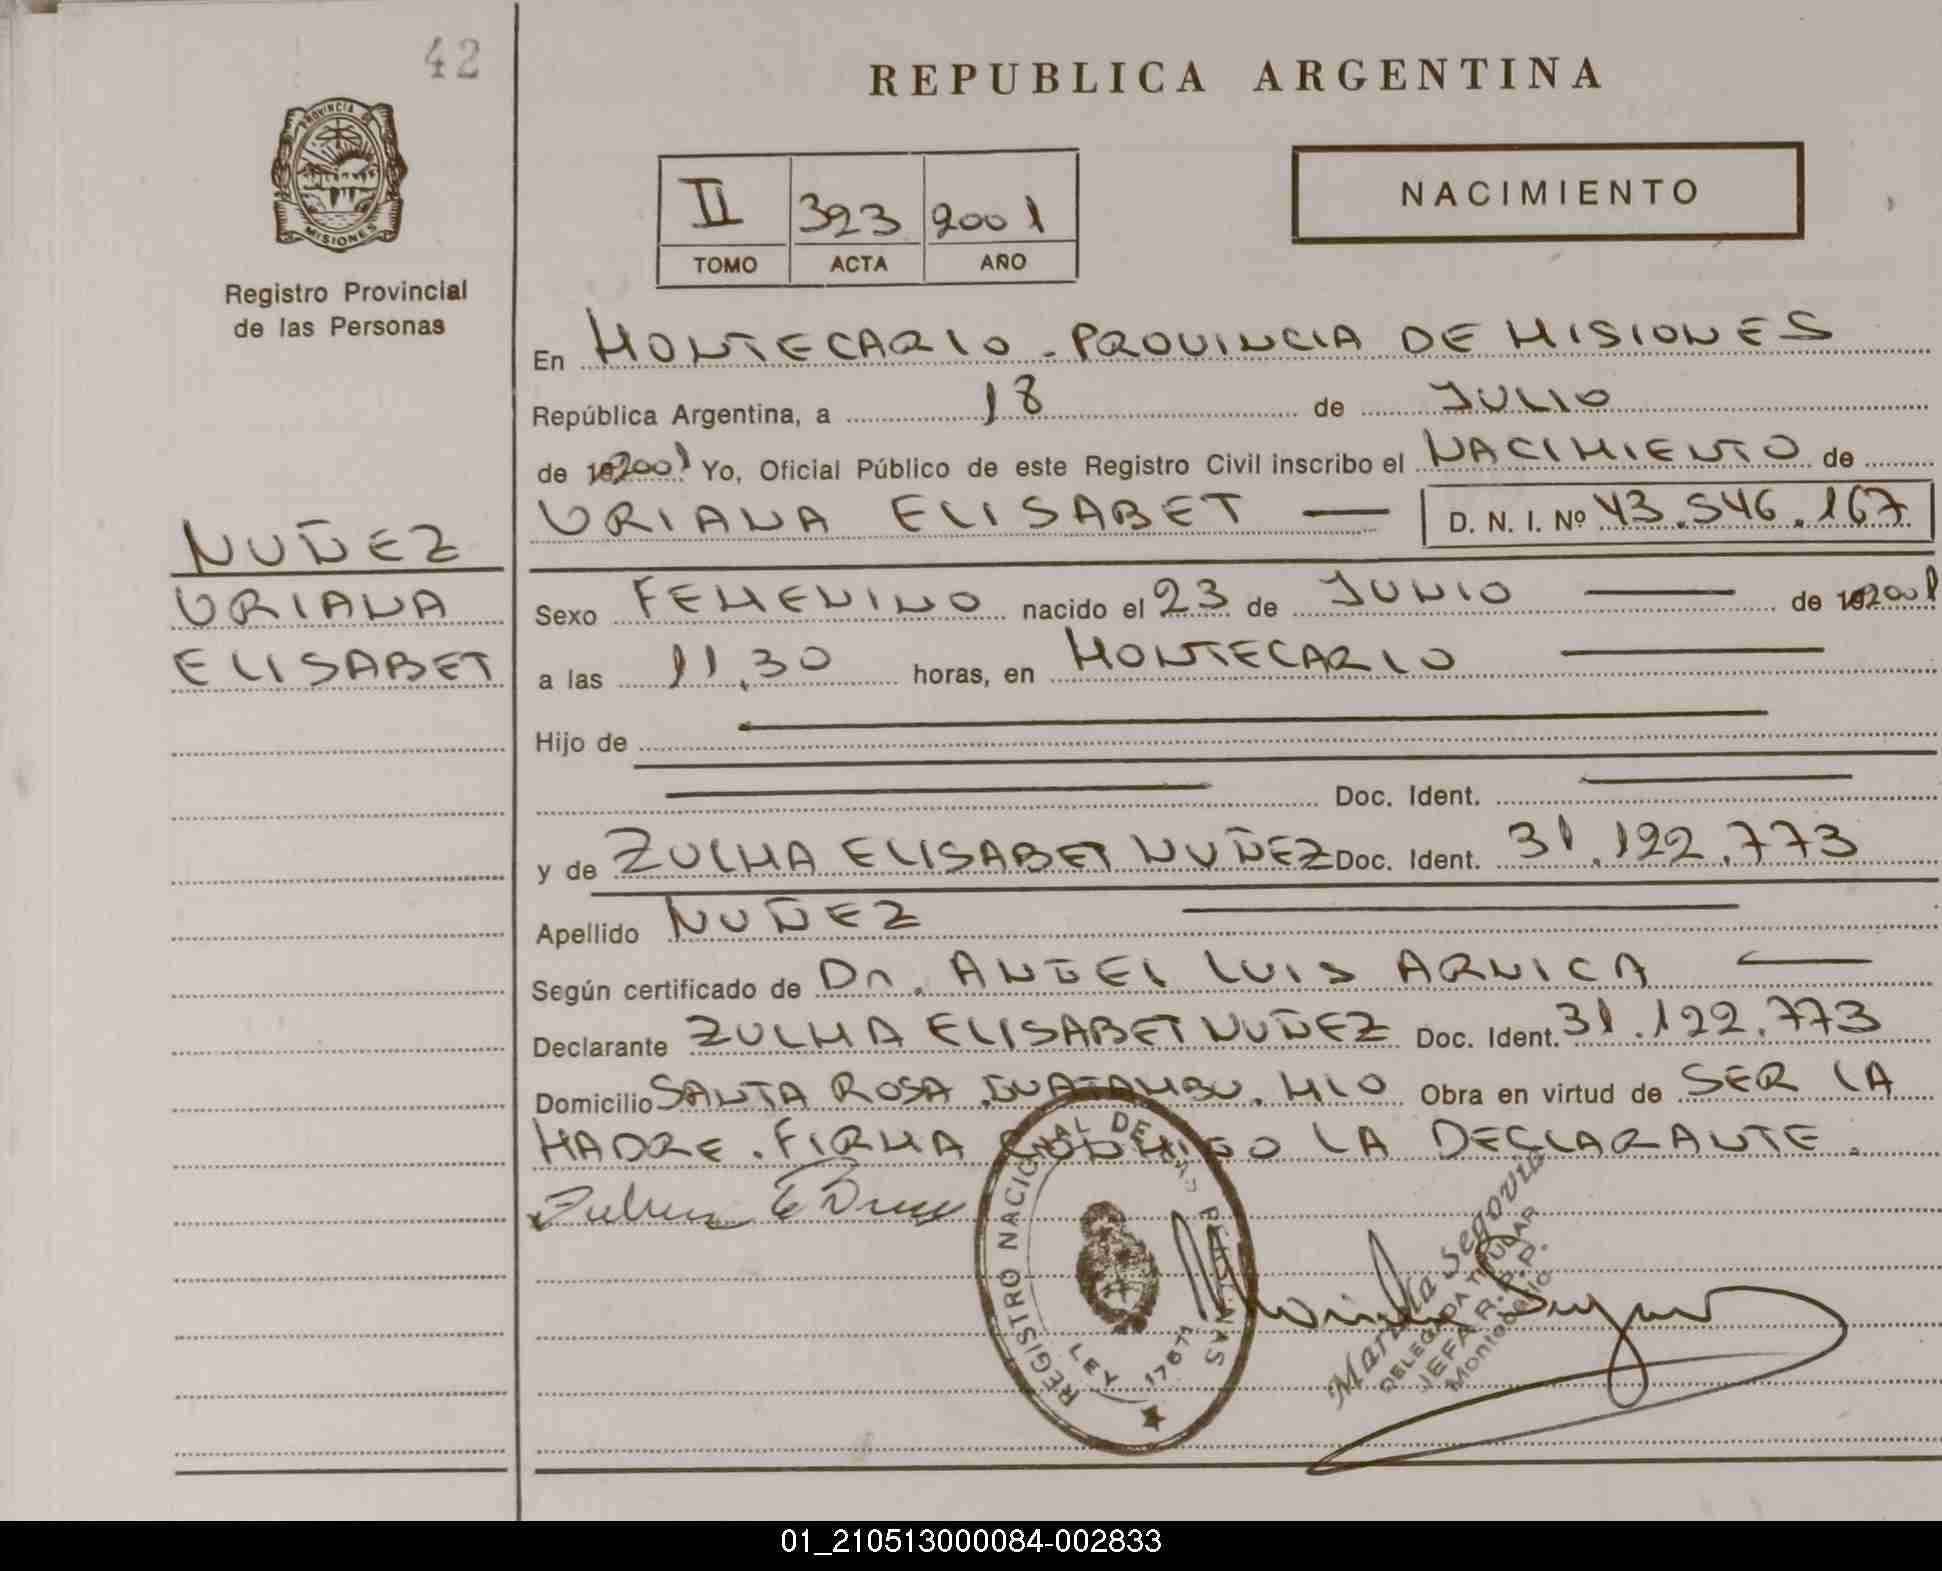 42
REPUBLICA ARGENTINA
PROVINCIA DE
MISIONES
Registro Provincial
de las Personas
II 323 2001
TOMO ACTA AÑO
NACIMIENTO
En MONTECARLO - PROVINCIA DE MISIONES
República Argentina, a 18 de JULIO
de 2001 Yo, Oficial Público de este Registro Civil inscribo el NACIMIENTO de
URIANA ELISABET — D. N. I. Nº 43.546.167
NUÑEZ
URIANA
ELISABET
Sexo FEMENINO nacido el 23 de JUNIO — de 2001
a las 11.30 horas, en MONTECARLO —
Hijo de
Doc. Ident.
y de ZULMA ELISABET NUÑEZ Doc. Ident. 31.122.773
Apellido NUÑEZ
Según certificado de Dr. ANGEL LUIS ARNICA
Declarante ZULMA ELISABET NUÑEZ Doc. Ident. 31.122.773
Domicilio SANTA ROSA. GUATAMBU. MLO Obra en virtud de SER LA
MADRE. FIRMA CONMIGO LA DECLARANTE.
REGISTRO NACIONAL DE LAS PERSONAS
LEY 17671
Segovia
DELEGADA TITULAR
JEFA R.P.P.
Montecarlo
01_210513000084-002833